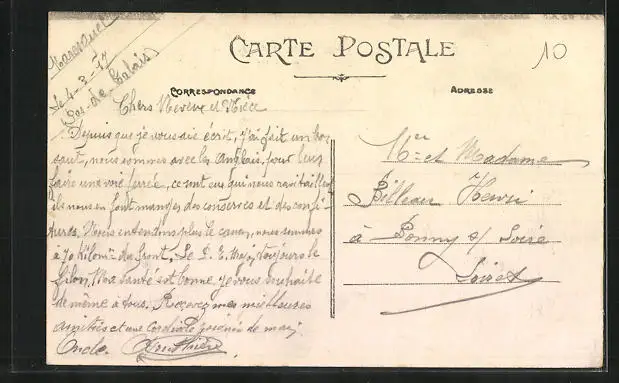 Maresquel
Le 4-3-17
Pas-de-Calais
CARTE POSTALE
10
CORRESPONDANCE
ADRESSE
Chers Neveve et Nièce
Depuis que je vous aie écrit, j'ai fait un bon
saut, nous sommes avec les anglais, pour leur
faire une voie ferrée, ce sont eux qui nous ravitaillent
ils nous en font manger des conserves et des confi-
tures. Nous entendons plus le canon, nous sommes
à 70 kilom du front. Le toujours le
filon, Ma santé est bonne, je vous souhaite
de même à tous. Recevez mes meilleures
amitiés et une cordiale poignée de main
Oncle
Mr et Madame
Billeau Henri
à Bonny s/ Loire
Loiret